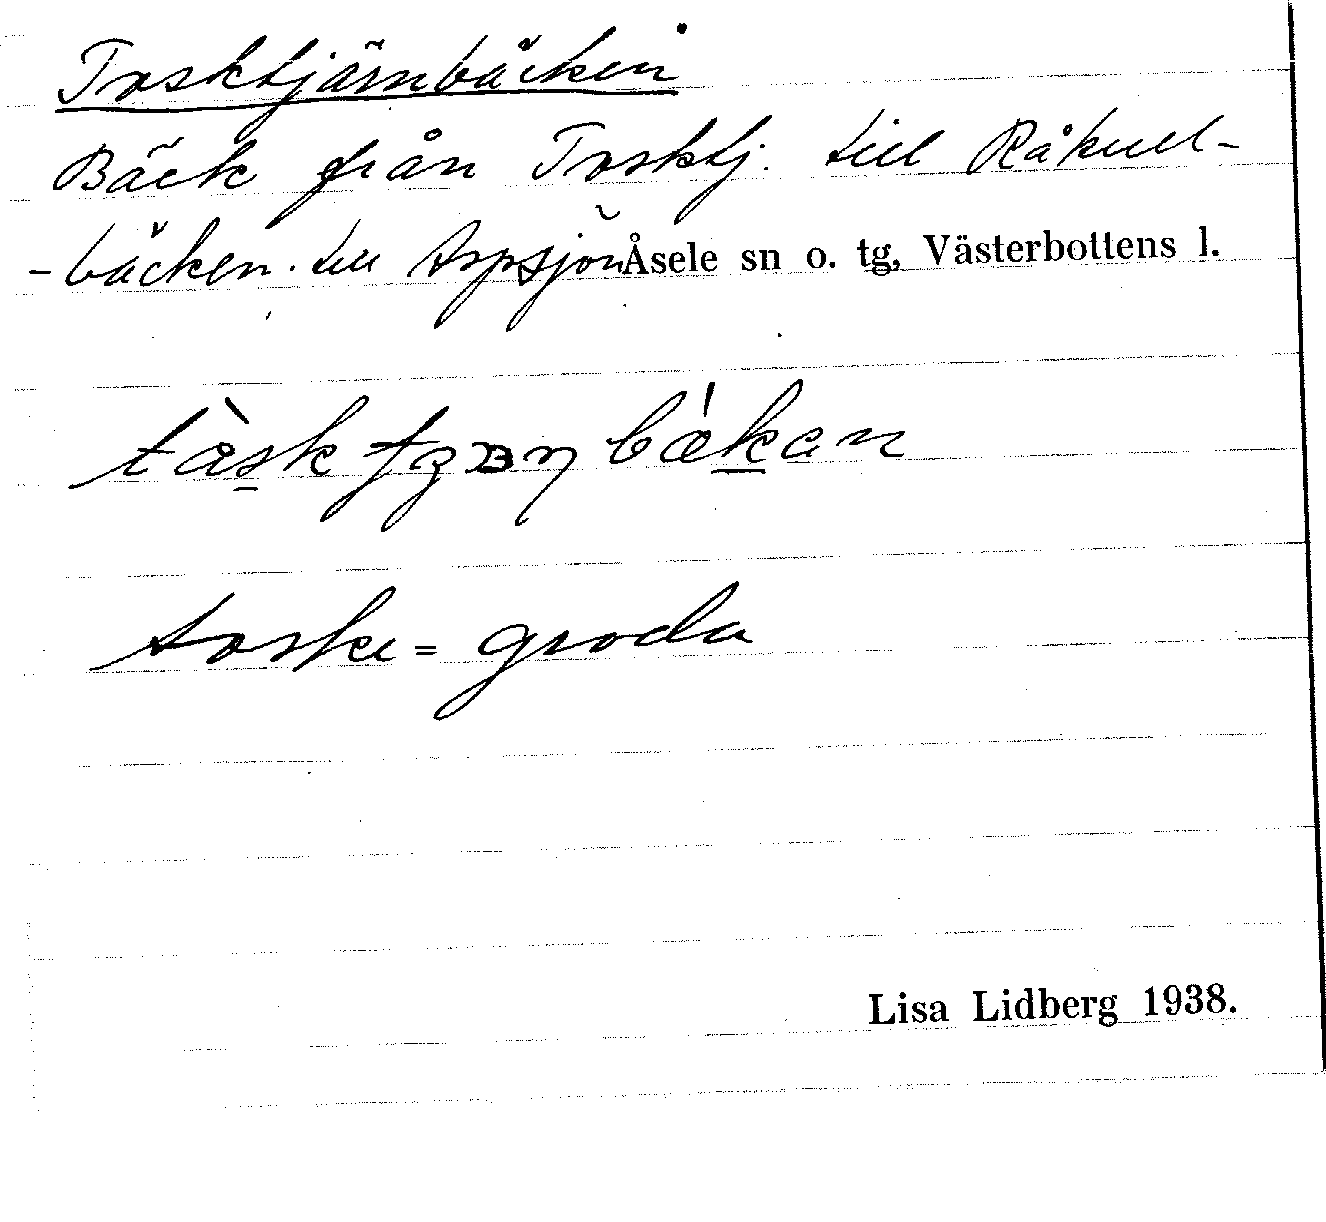 Trosktjärnbäcken
Bäck från Trosktj. till Råkuel-
-bäcken. till Arpsjön Åsele sn o. tg, Västerbottens l.
troske = groda
Lisa Lidberg 1938.